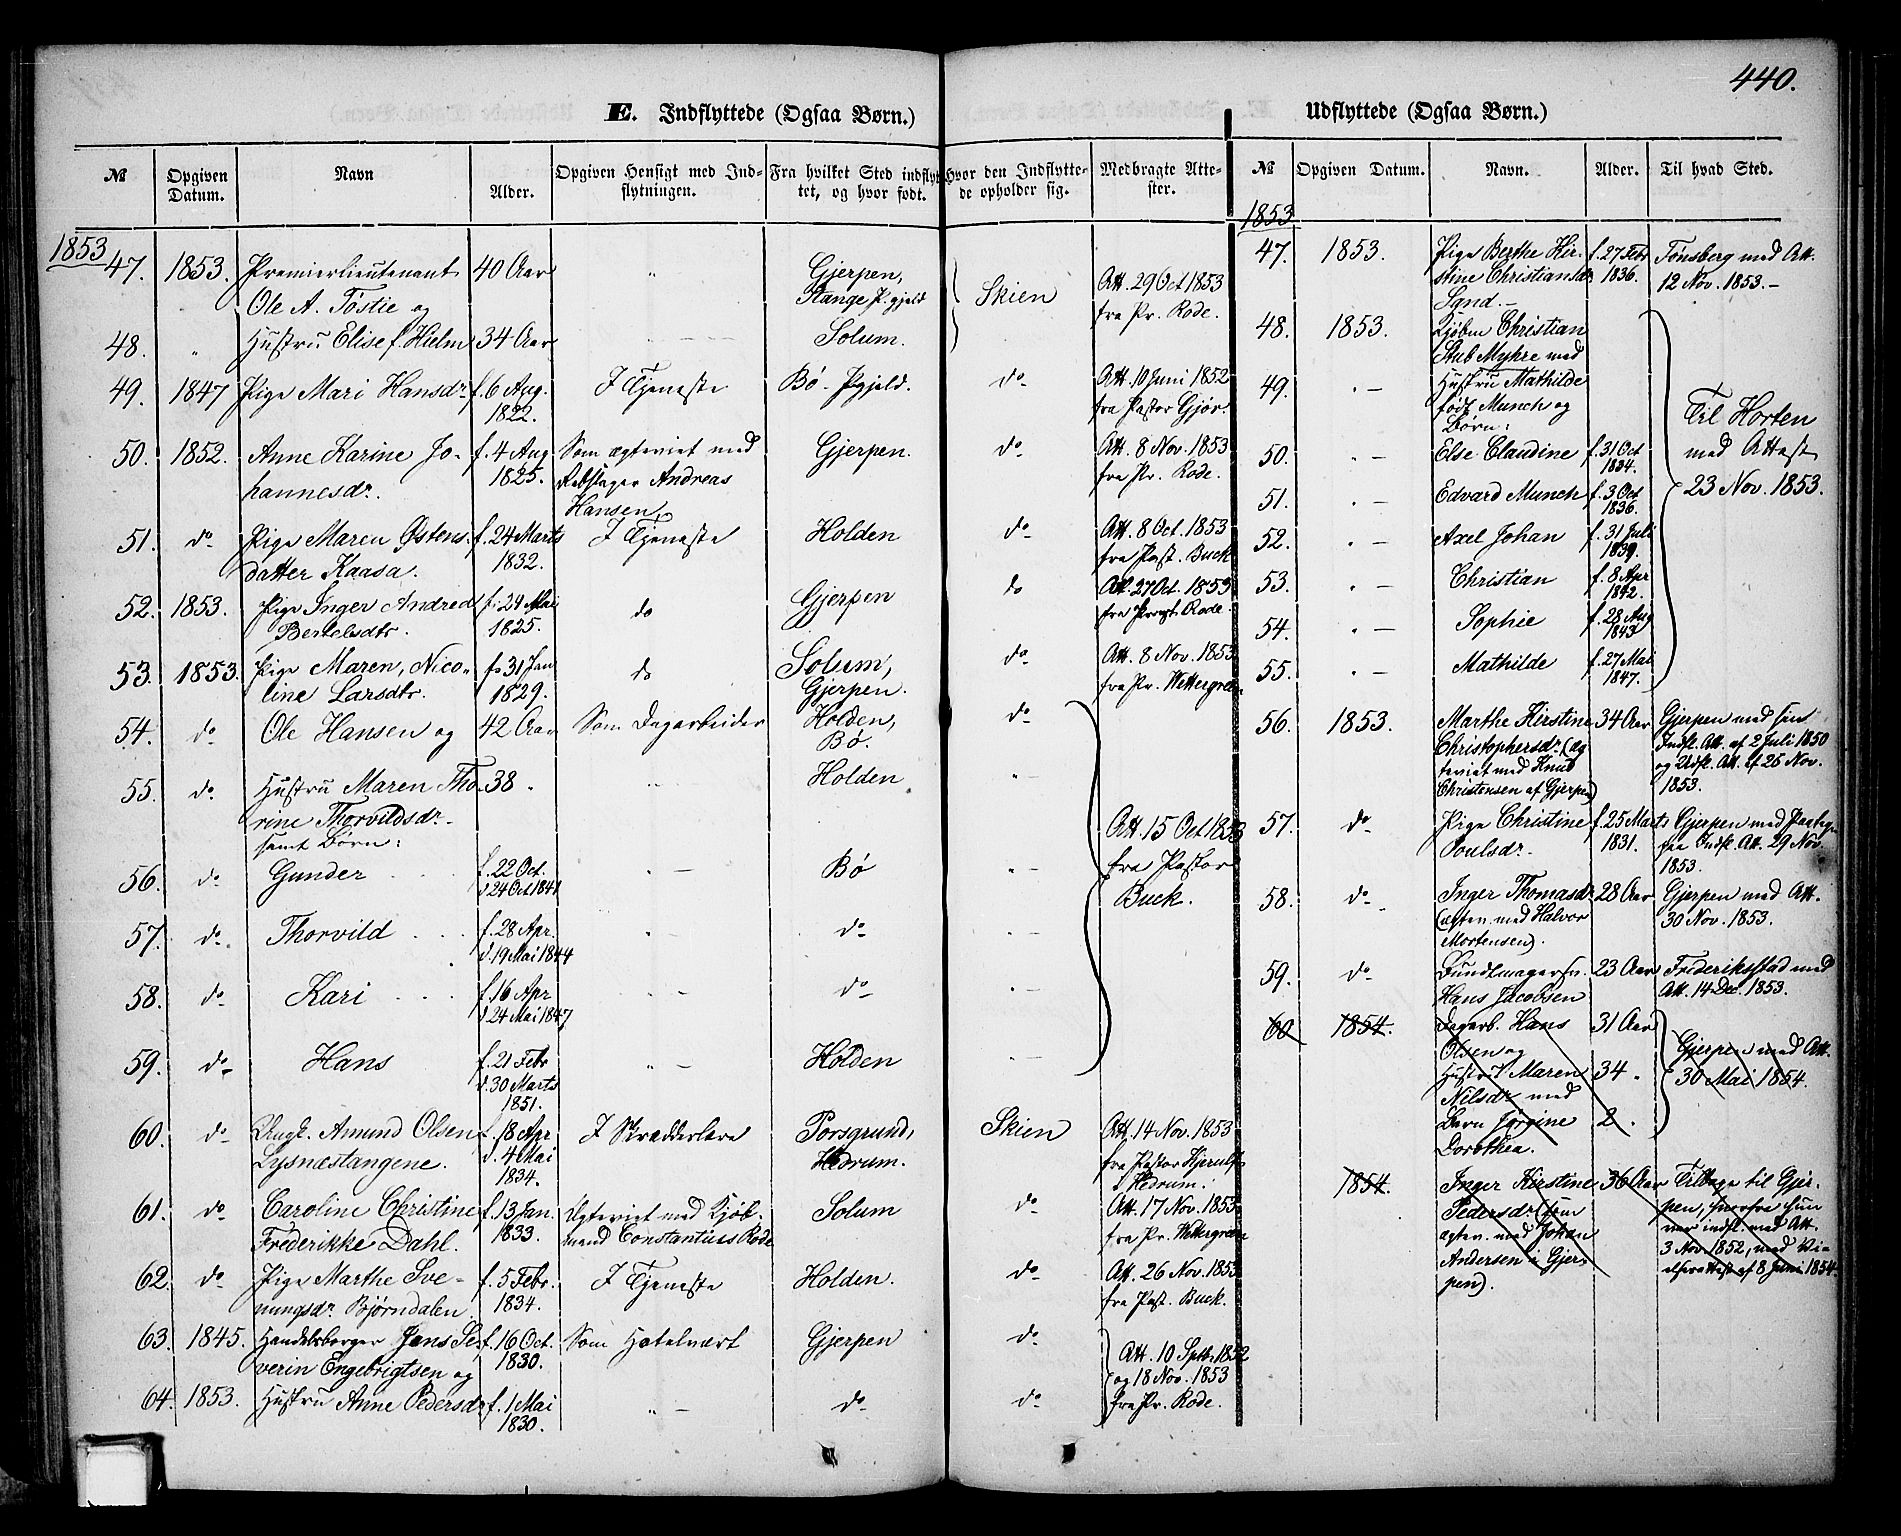 440.
E. Indflyttede (Ogsaa Børn.)
Udflyttede (Ogsaa Børn.)
№ Opgiven Datum. Navn Alder. Opgiven Hensigt med Indflytningen. Fra hvilket Sted indflyttet, og hvor født. Hvor den Indflyttede opholder sig. Medbragte Attester.
1853
47. 1853. Premierlieutenant 40 Aar " Gjerpen, Skien Att. 29 Oct 1853
Ole A. Tøstie og Stange P.gjeld fra Pr. Rode.
48. " Hustru Elise f. Hielm 34 Aar Solum.
49. 1847 Pige Mari Hansdr. f. 6 Aug. I Tjeneste Bø Pgjeld. do Att. 10 Juni 1852
1822. fra Pastor Gjør.
50. 1852. Anne Karine Jo- f. 4 Aug Som ægteviet med Gjerpen. do Att. 8 Nov. 1853
hannesdr. 1825. Rebslager Andreas fra Pr. Rode.
Hansen.
51. do Pige Maren Østens- f. 24 Marts I Tjeneste Holden do Att. 8 Oct. 1853
datter Kaasa. 1832. fra Past. Buck
52. 1853. Pige Inger Andrea f. 29 Mai do Gjerpen do Att. 27 Oct. 1853
Bertelsdtr. 1825. fra Provst Rode.
53. 1853. Pige Maren, Nico- f. 31 Jan do Solum, do Att. 8 Nov. 1853
line Larsdtr. 1829. Gjerpen. fra Pr. Wettergreen
54. do Ole Hansen og 42 Aar Som Dagarbeider Holden, do
Bø.
55. do Hustru Maren Tho- 38 " Holden " -
rine Thorvildsdr. Att. 15 Oct 1853
samt Børn: fra Pastor
56. do Gunder f. 22 Oct. " - Bø " - Buck.
d. 24 Oct 1841
57. do Thorvild f. 28 Apr. " - do " -
d. 19 Mai 1844
58. do Kari f. 16 Apr " - do " -
d. 24 Mai 1847
59. do Hans f. 21 Febr " - Holden " -
d. 30 Marts
1851.
60. do Ungk. Amund Olsen f. 18 Apr I Skrædderlære Porsgrund, Skien Att. 14 Nov. 1853
Lysnæstangene. d. 4 Mai Hedrum. fra Pastor Kjerulf
1834. i Hedrum.
61. do Caroline Christine f. 13 Jan. Ægteviet med Kjøb- Solum do Att. 17 Nov. 1853
Frederikke Dahl. 1833. mand Constantius Rode fra Pr. Wettergreen
62. do Pige Marthe Sve- f. 5 Febr. I Tjeneste Holden. do Att. 26 Nov. 1853
nungsdr. Bjørndalen 1834. fra Past. Buck.
63. 1845. Handelsborger Jens Se- f. 16 Oct. Som Hotelvært Gjerpen do Att. 10 Sptb. 1852
verin Engebrigtsen og 1830. og 18 Nov. 1853
64. 1853. Hustru Anne Pedersdr f. 1 Mai " - do do fra Pr. Rode.
1830.
№ Opgiven Datum. Navn. Alder. Til hvad Sted.
1853
47. 1853. Pige Berthe Kir- f. 27 Febr Tønsberg med Att.
stine Christiansdr 1836. 12 Nov. 1853.-
Sand.-
48. 1853. Kjøbm Christian
Stub Myhre med
49. " - Hustru Mathilde
født Munch og Til Horten
Børn:
50. " - Else Claudine f. 31 Oct med Attest
1834.
51. " - Edvard Munch f. 3 Oct 23 Nov. 1853.
1836.
52. " - Axel Johan f. 31 Juli
1839.
53. " - Christian f. 8 Apr
1842.
54. " - Sophie f. 28 Aug
1843
55. " - Mathilde f. 27 Mai
1847.
56. 1853. Marthe Kirstine 34 Aar Gjerpen med sin
Christophersdr. (æg- Indfl. Att. af 2 Juli 1850
teviet med Knud og Udfl. Att. af 25 Nov.
Christensen af Gjerpen) 1853.
57. do Pige Christine f. 25 Marts Gjerpen med Paateg.
Poulsdr. 1831. paa Indfl. Att. 29 Nov.
1853.
58. do Inger Thomasdr. 28 Aar Gjerpen med Att.
(ægtev. med Halvor 30 Nov. 1853.
Mortensen).
59. do Bundtmagersv. 23 Aar Frederiksstad med
Hans Jacobsen Att. 14 Dec. 1853.
60 1854. Dagarb. Hans 31 Aar
Olsen og Gjerpen med Att.
Hustru Maren 34 " 30 Mai 1854.
Nilsdr. med
Barn Jørgine 2 "
Dorothea.
1854. Inger Kirstine 36 Aar Tilbage til Gjer-
Pedersdr. (som pen, hvorfra hun
ægtev. med Johan var indfl. med Att.
Andersen i Gjer- 3 Nov. 1852, med Vi-
pen). elsesattest af 8 Juni 1854.